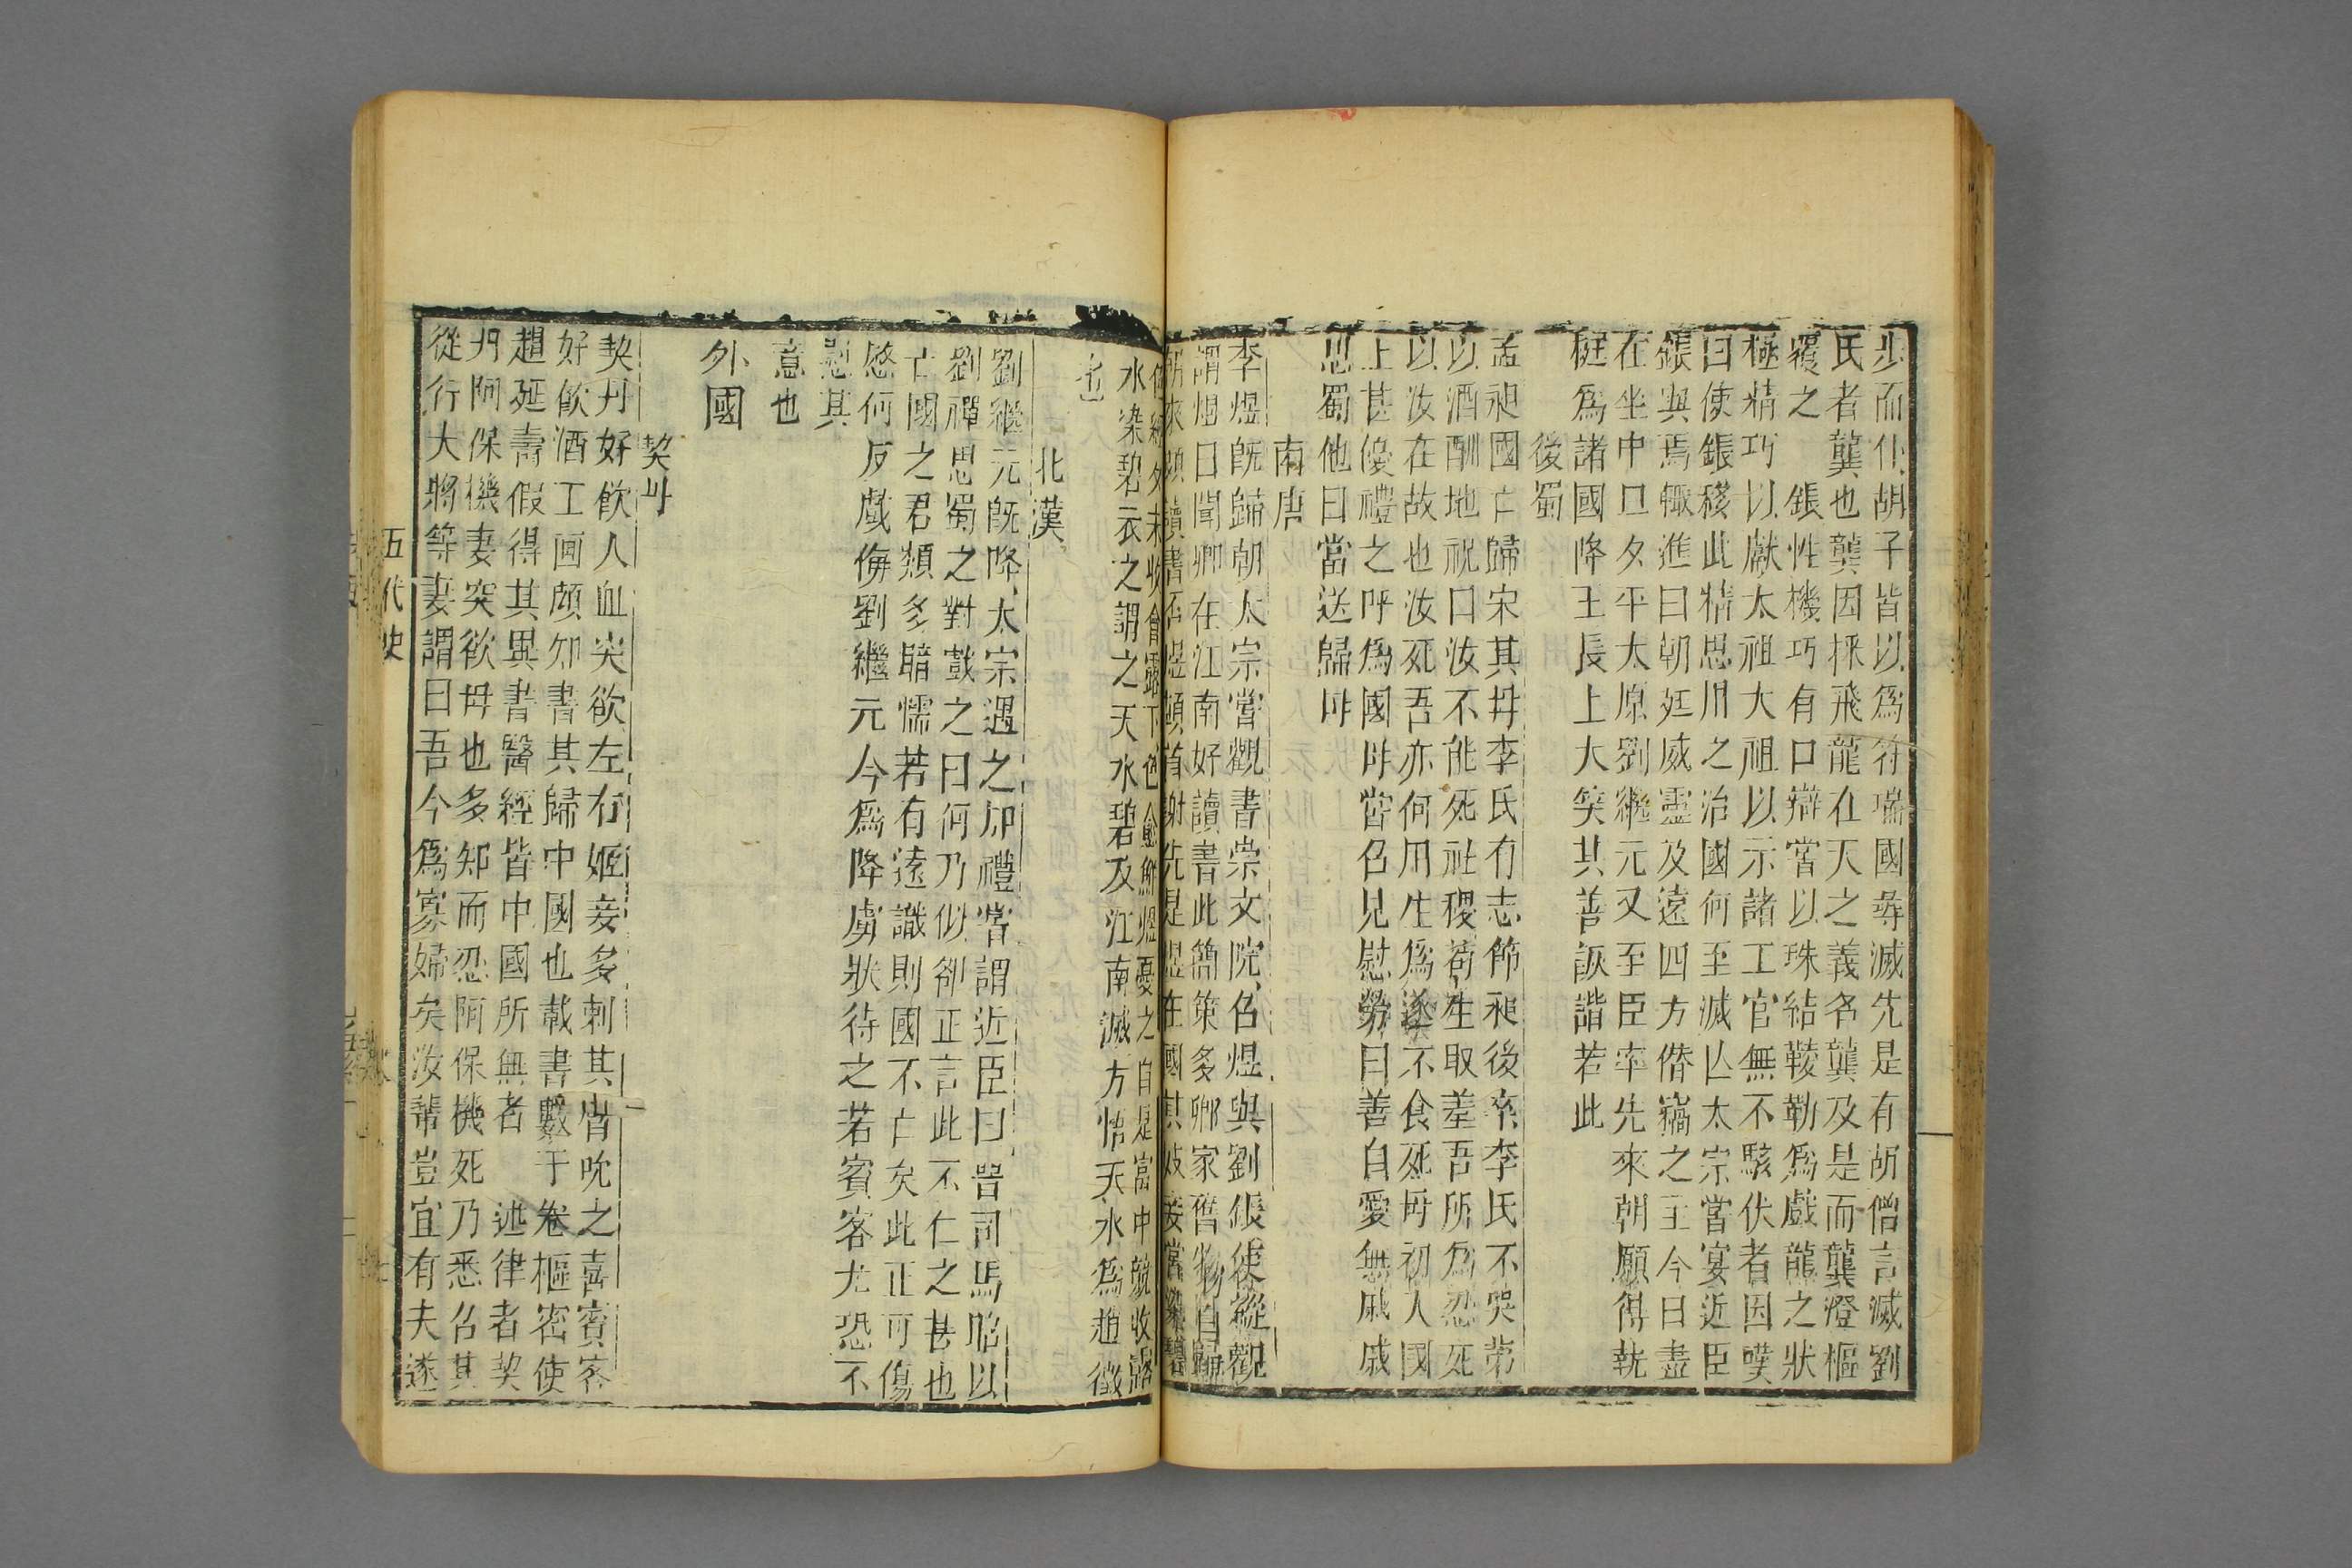 步而仆胡子皆以爲符瑞國尋滅先是有胡僧言滅劉
氏者龔也龔因採飛龍在天之義名龔及是而龔澄樞
覆之　鋹性機巧有口辯嘗以珠結鞍勒爲戲龍之狀
極精巧以獻太祖大祖以示諸工官無不駭伏者因嘆
曰使鋹移此精思用之治國何至滅亾太宗嘗宴近臣
鋹與焉輒進曰朝廷威靈及遠四方僣竊之主今日盡
在坐中旦夕平太原劉繼元又至臣率先來朝願得執
梃爲諸國降王長上大笑其善詼諧若此
後蜀
孟昶國亡歸宋其母李氏有志節昶後卒李氏不哭第
以酒酬地祝曰汝不能死社稷苟生取羞吾所爲忍死
以汝在故也汝死吾亦何用生爲遂不食死母初入國
上甚優禮之呼爲國母嘗召見慰勞曰善自愛無戚戚
思蜀他日當送歸母
南唐
李煜旣歸朝太宗嘗觀書崇文院召煜與劉鋹使縱觀
謂煜曰聞卿在江南好讀書此簡策多卿家舊物自歸
朝來頗讀書否煜頓首謝先是煜在國其妓妾嘗染碧
經夕未收會露下色愈鮮煜憂之自是宮中競收露
水染碧衣之謂之天水碧及江南滅方悟天水爲趙徵
也
北漢
劉繼元旣降太宗遇之加禮嘗謂近臣曰昔司馬昭以
劉禪思蜀之對戲之曰何乃似郤正言此不仁之甚也
亡國之君類多暗懦若有遠識則國不亡矣此正可傷
愍何反戲侮劉繼元今爲降虜狀待之若賓客尤恐不
慰其
意也
外國
契丹
契丹好飮人血突欲左右姬妾多刺其胷吮之喜賓客
好飮酒工画頗知書其歸中國也載書數千卷樞密使
趙延壽假得其異書醫經皆中國所無者　述律者契
丹阿保機妻突欲母也多知而忍阿保機死乃悉召其
從行大將等妻謂曰吾今爲寡婦矣汝輩豈宜有夫遂
五代史